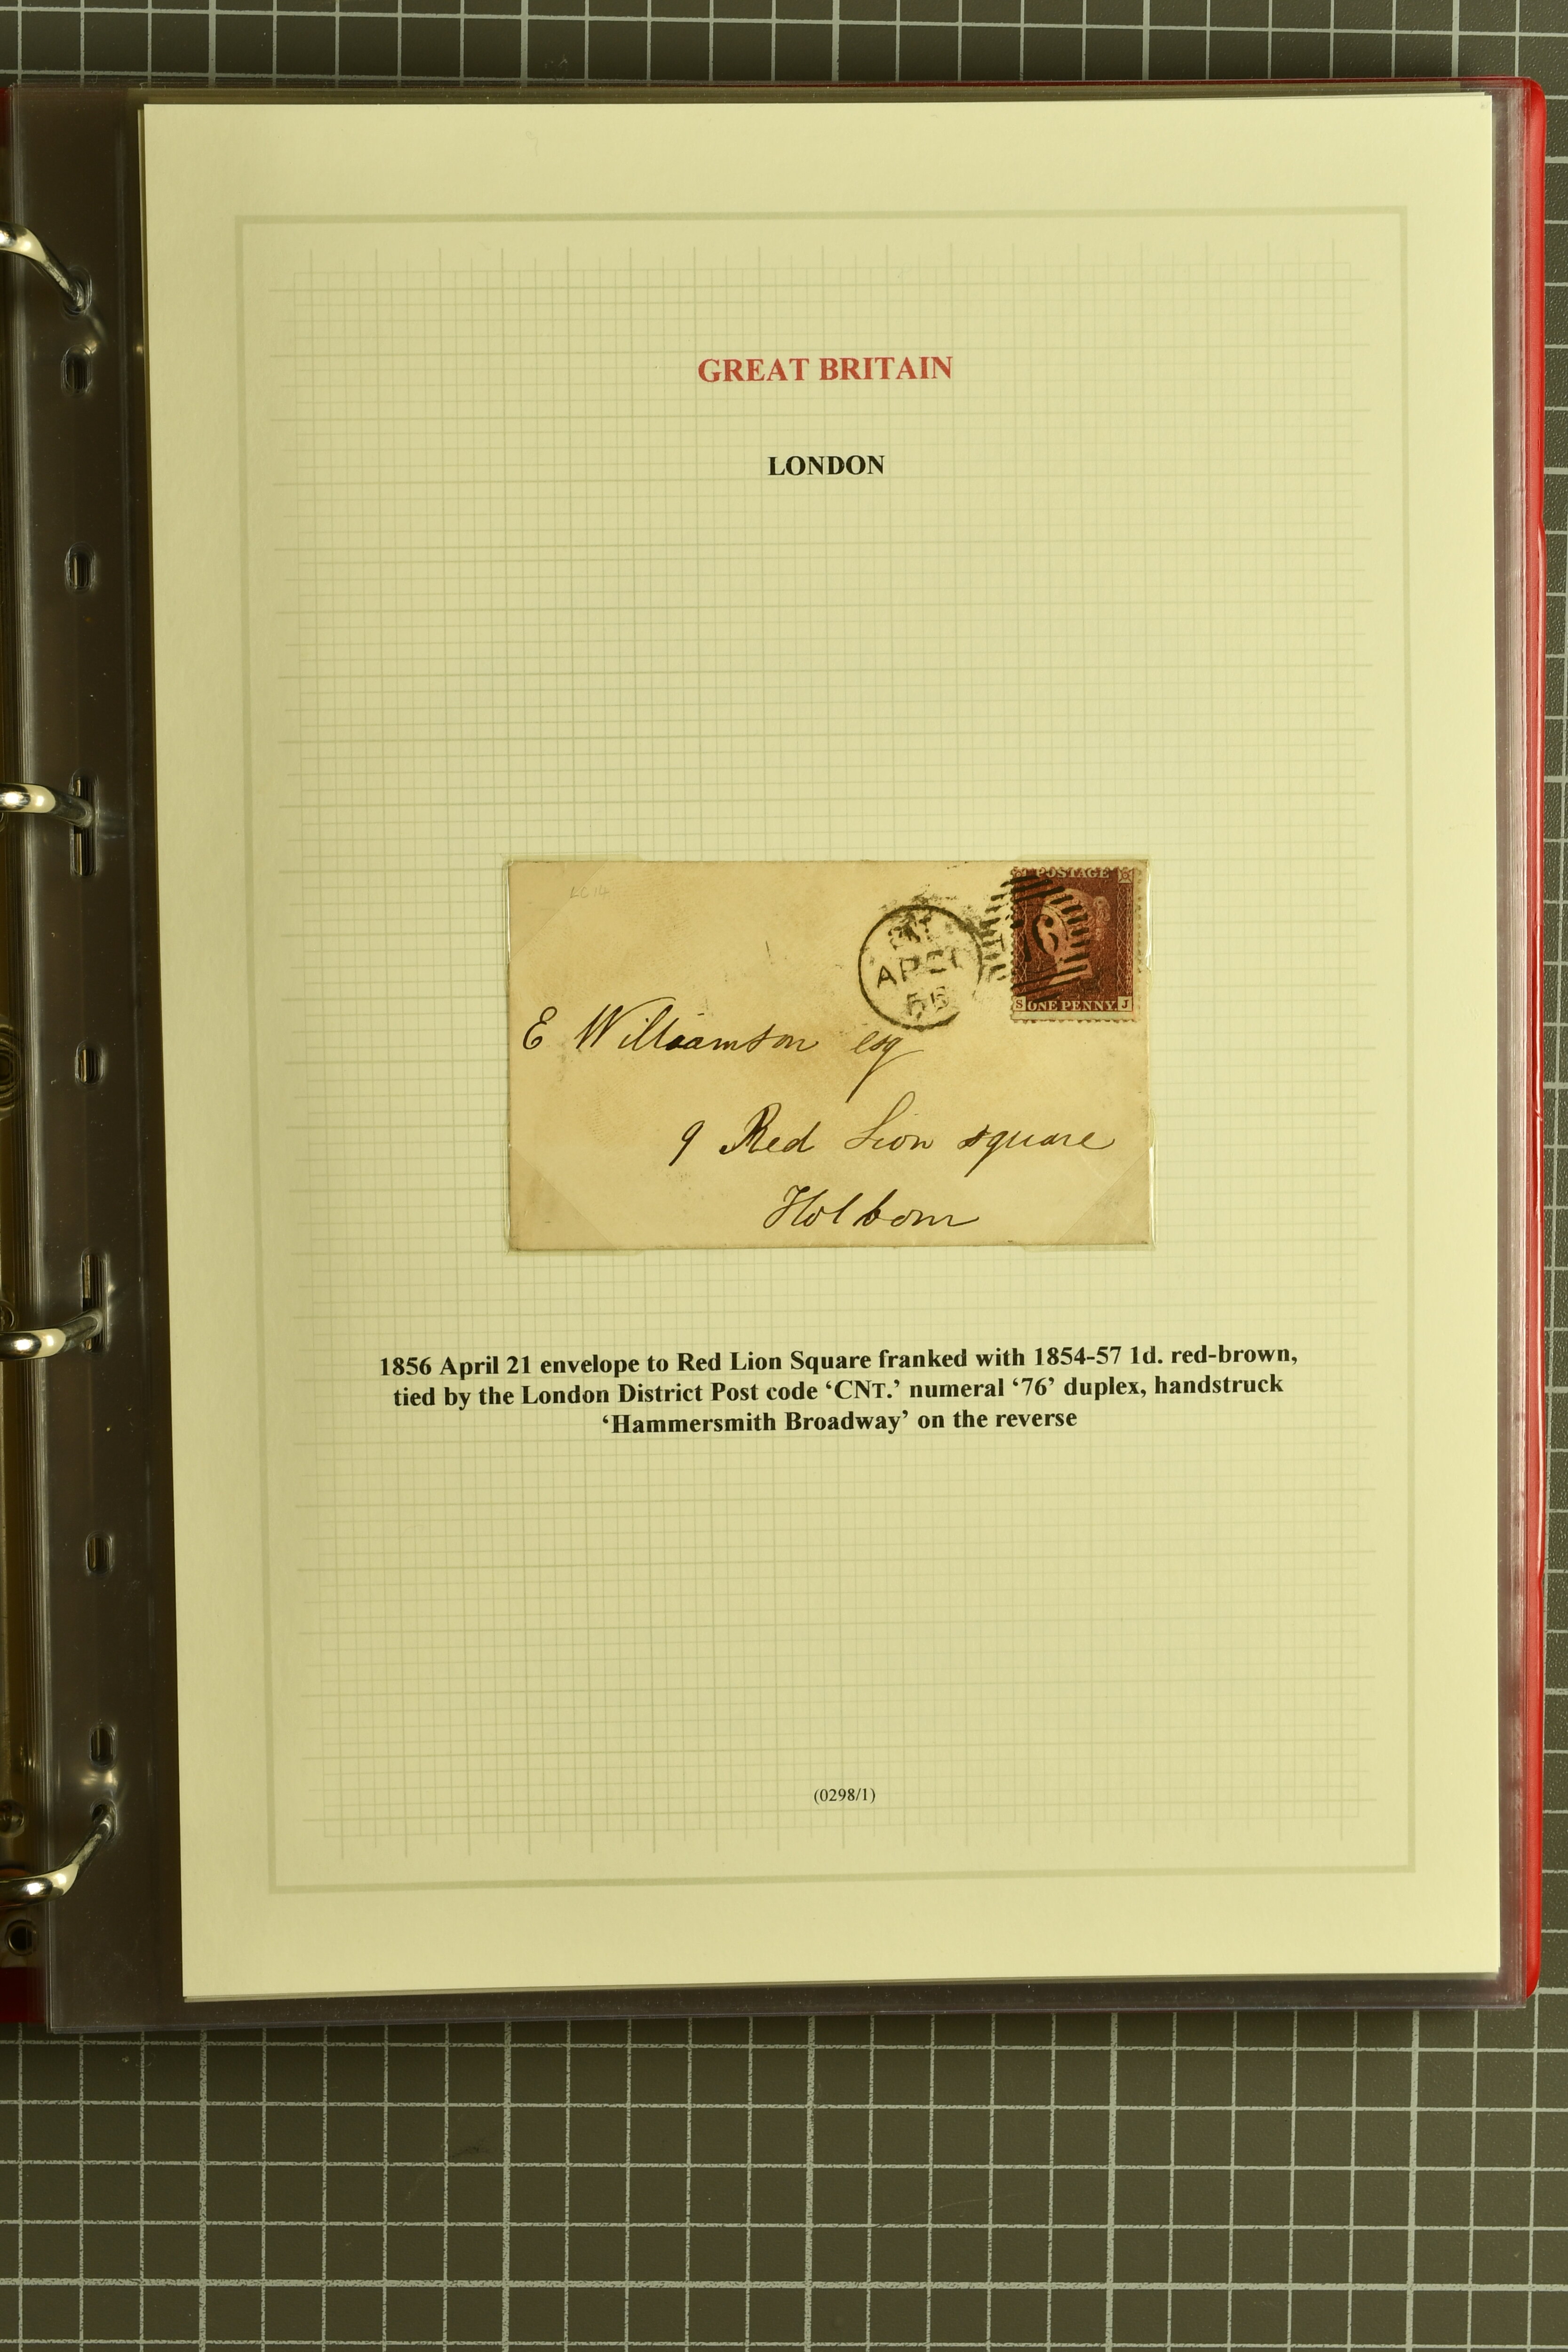 GREAT BRITAIN
LONDON
POSTAGE
AP 21
56
76
S ONE PENNY. J
E Williamson esq
9 Red Lion square
Holborn
1856 April 21 envelope to Red Lion Square franked with 1854-57 1d. red-brown,
tied by the London District Post code ‘CNT.’ numeral ‘76’ duplex, handstruck
‘Hammersmith Broadway’ on the reverse
(0298/1)